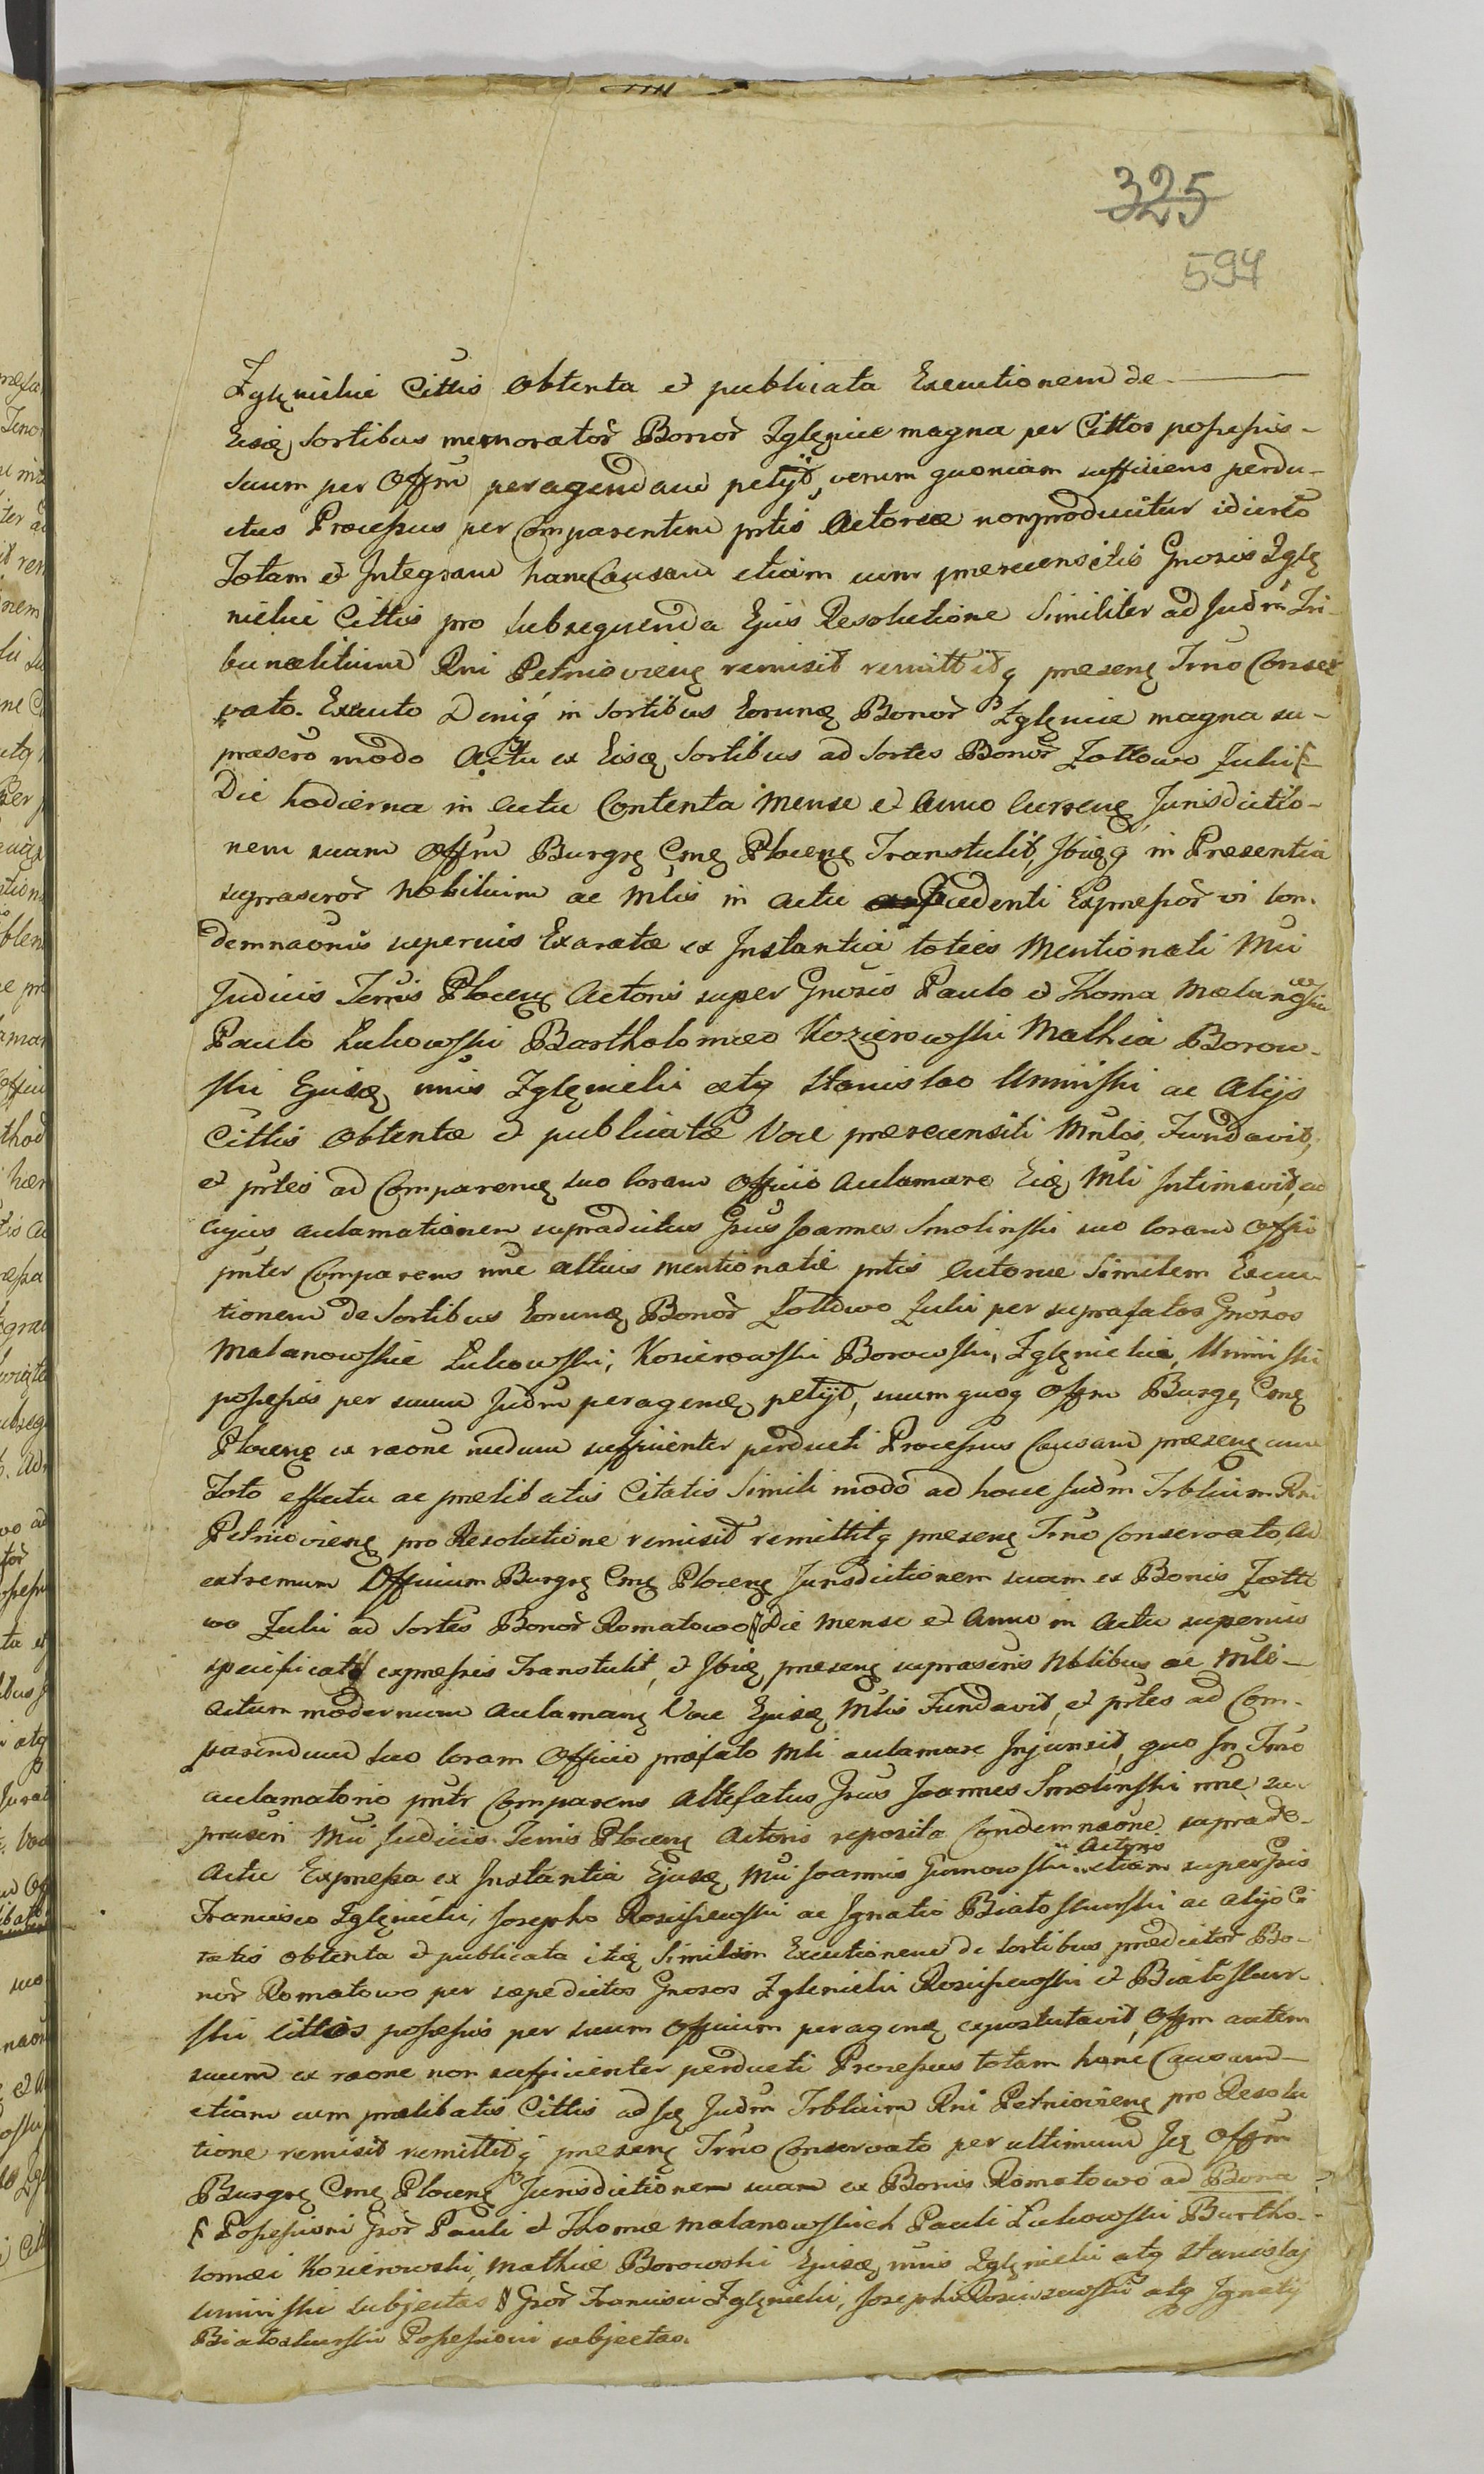 325
594
Zglęnicki Cittis obtenta et publicata Executionem de
Eisdę Sortibus memorator̃ Bonor̃ Zglęnice magna per Cittos possessis
suum per Offm̃ peragendam petÿt, verum quoniam sufficiens perdu-
ctus Processus per Comparentem prtis Actoreæ non producitur idcirco
Totam et Integram hanc Causam etiam cum præcensitis Gnosis Zglę
nickie Cittis pro subsequenda Ejus Resolutione Similiter ad Judm̃ Tri-
bunalitium Rni Petricovienę remisit remittitq præsenę Trno Conser
vato. Exeuto Deniq in Sortibus Eorundę Bonor̃ Zglęnice magna su-
prascro modo Actu ex Eisdę Sortibus ad Sortes Bonor̃ Zottowo Zuki
Die hodierna in Actu Contenta Mense et Anno Currenę Jurisdictio-
nem suam Offm Burgrę Cmę Plocenę Transtulit, Ibidęq in Præsentia
suprascror̃ Nobilium ac Mlis in Actu præcedenti Expressor̃ vi Con-
demnaonis superius Exaratæ ex Instantia toties Mentionati Mci
Judicis Terris Plocenę Actoris super Gnosis Paulo et Thoma Malanowskie
Paulo Lukowski Bartholomæo Kozierowski Mathia Borow-
ski Ejusdę nnis Zglęnicki atq Stanislao Uminski ac Alijs
Cittis obtentæ et publicatæ Voce præcensiti Mnlis Fundavit,
et prtes ad Comparenę suo Coram Officio Aclamare Eidę Mli Intimavit, ad
cujus aclamationem supradictus Gsus Joannes Smolinski suo Coram Offi
pnter Comparens nne altius mentionatæ prtis Actoreæ Similem Execu-
tionem de Sortibus Eorundę Bonor̃ Zottowo Zuki per suprafatos Gnosos
Malanowskie Lukowski, Kozierowski Borowski, Zglęnickie, Uminski
possessis per suum Judm̃ peragendę petÿt, suum quoq Offm Burgę Cmę
Plocenę ex raone nedum sufficienter perducti Processus Causam præsenę cum
Toto effectu ac prælibatis Citatis Simili modo ad hocce Judm Trblium Rni
Petricovienę pro Resolutione remisit remittitq præsenę Trno Conservato, Ad
extremum Officium Burgrę Cmę Plocenę Jurisdictionem suam ex Bonis Zotto
wo Zuki ad Sortes Bonor̃ Romatowo Die Mense et Anno in Actu superius
specificato expressis Transtulit, et Ibidę præsenę suprascris Nblibus ac Mli
actum modernum aclamanę Voce Ejusdę Mlis Fundavit, et prtes ad Com-
parendum suo Coram Officio præfato Mli aclamare Injunxit, quo In Trno
aclamatorio pntr Comparens Altefatus Gsus Joannes Smolinski nne su-
prascri Mci Judicis Terris Plocenę Actoris reposita Condemnaone supra de-
Actu Expressa ex Instantia Ejusdę Mci Joannis Gumowski Actoris etiam super Gsis
Francisco Zglęnicki, Josepho Rosciszewski ac Ignatio Białoskurski ac alijs Ci
tatis obtenta et publicata itidę Similem Executionem de Sortibus prædictor̃ Bo-
nor̃ Romatowo per sæpedictos Gnosos Zglenicki Rosciszewski et Białoskur-
ski Cittos possessis per suum Officium peragendę expostulavit, Offm autem
suum ex raone non sufficienter perducti Processus totam hanc Causam
etiam cum prælibatis Cittis ad Idę Judm Trblium Rni Petricovienę pro Resolu
tione remisit remittitq præsenę Trno Conservato per ultimum Idę Offm
Burgrę Cmę Plocenę Jurisdictionem suam ex Bonis Romatowo ad Bona
Possessioni Gsor̃ Pauli et Thomæ Malanowskich Pauli Lukowski Bartho-
lomæi Kozierowski, Mathiæ Borowski Ejusdę nnis Zglęnicki atq Stanislaj
Uminski subjectas Gsor̃ Francisci Zglęnicki, Josephi Rosciszewski atq Ignatij
Białoskurski Possessioni subjectas.